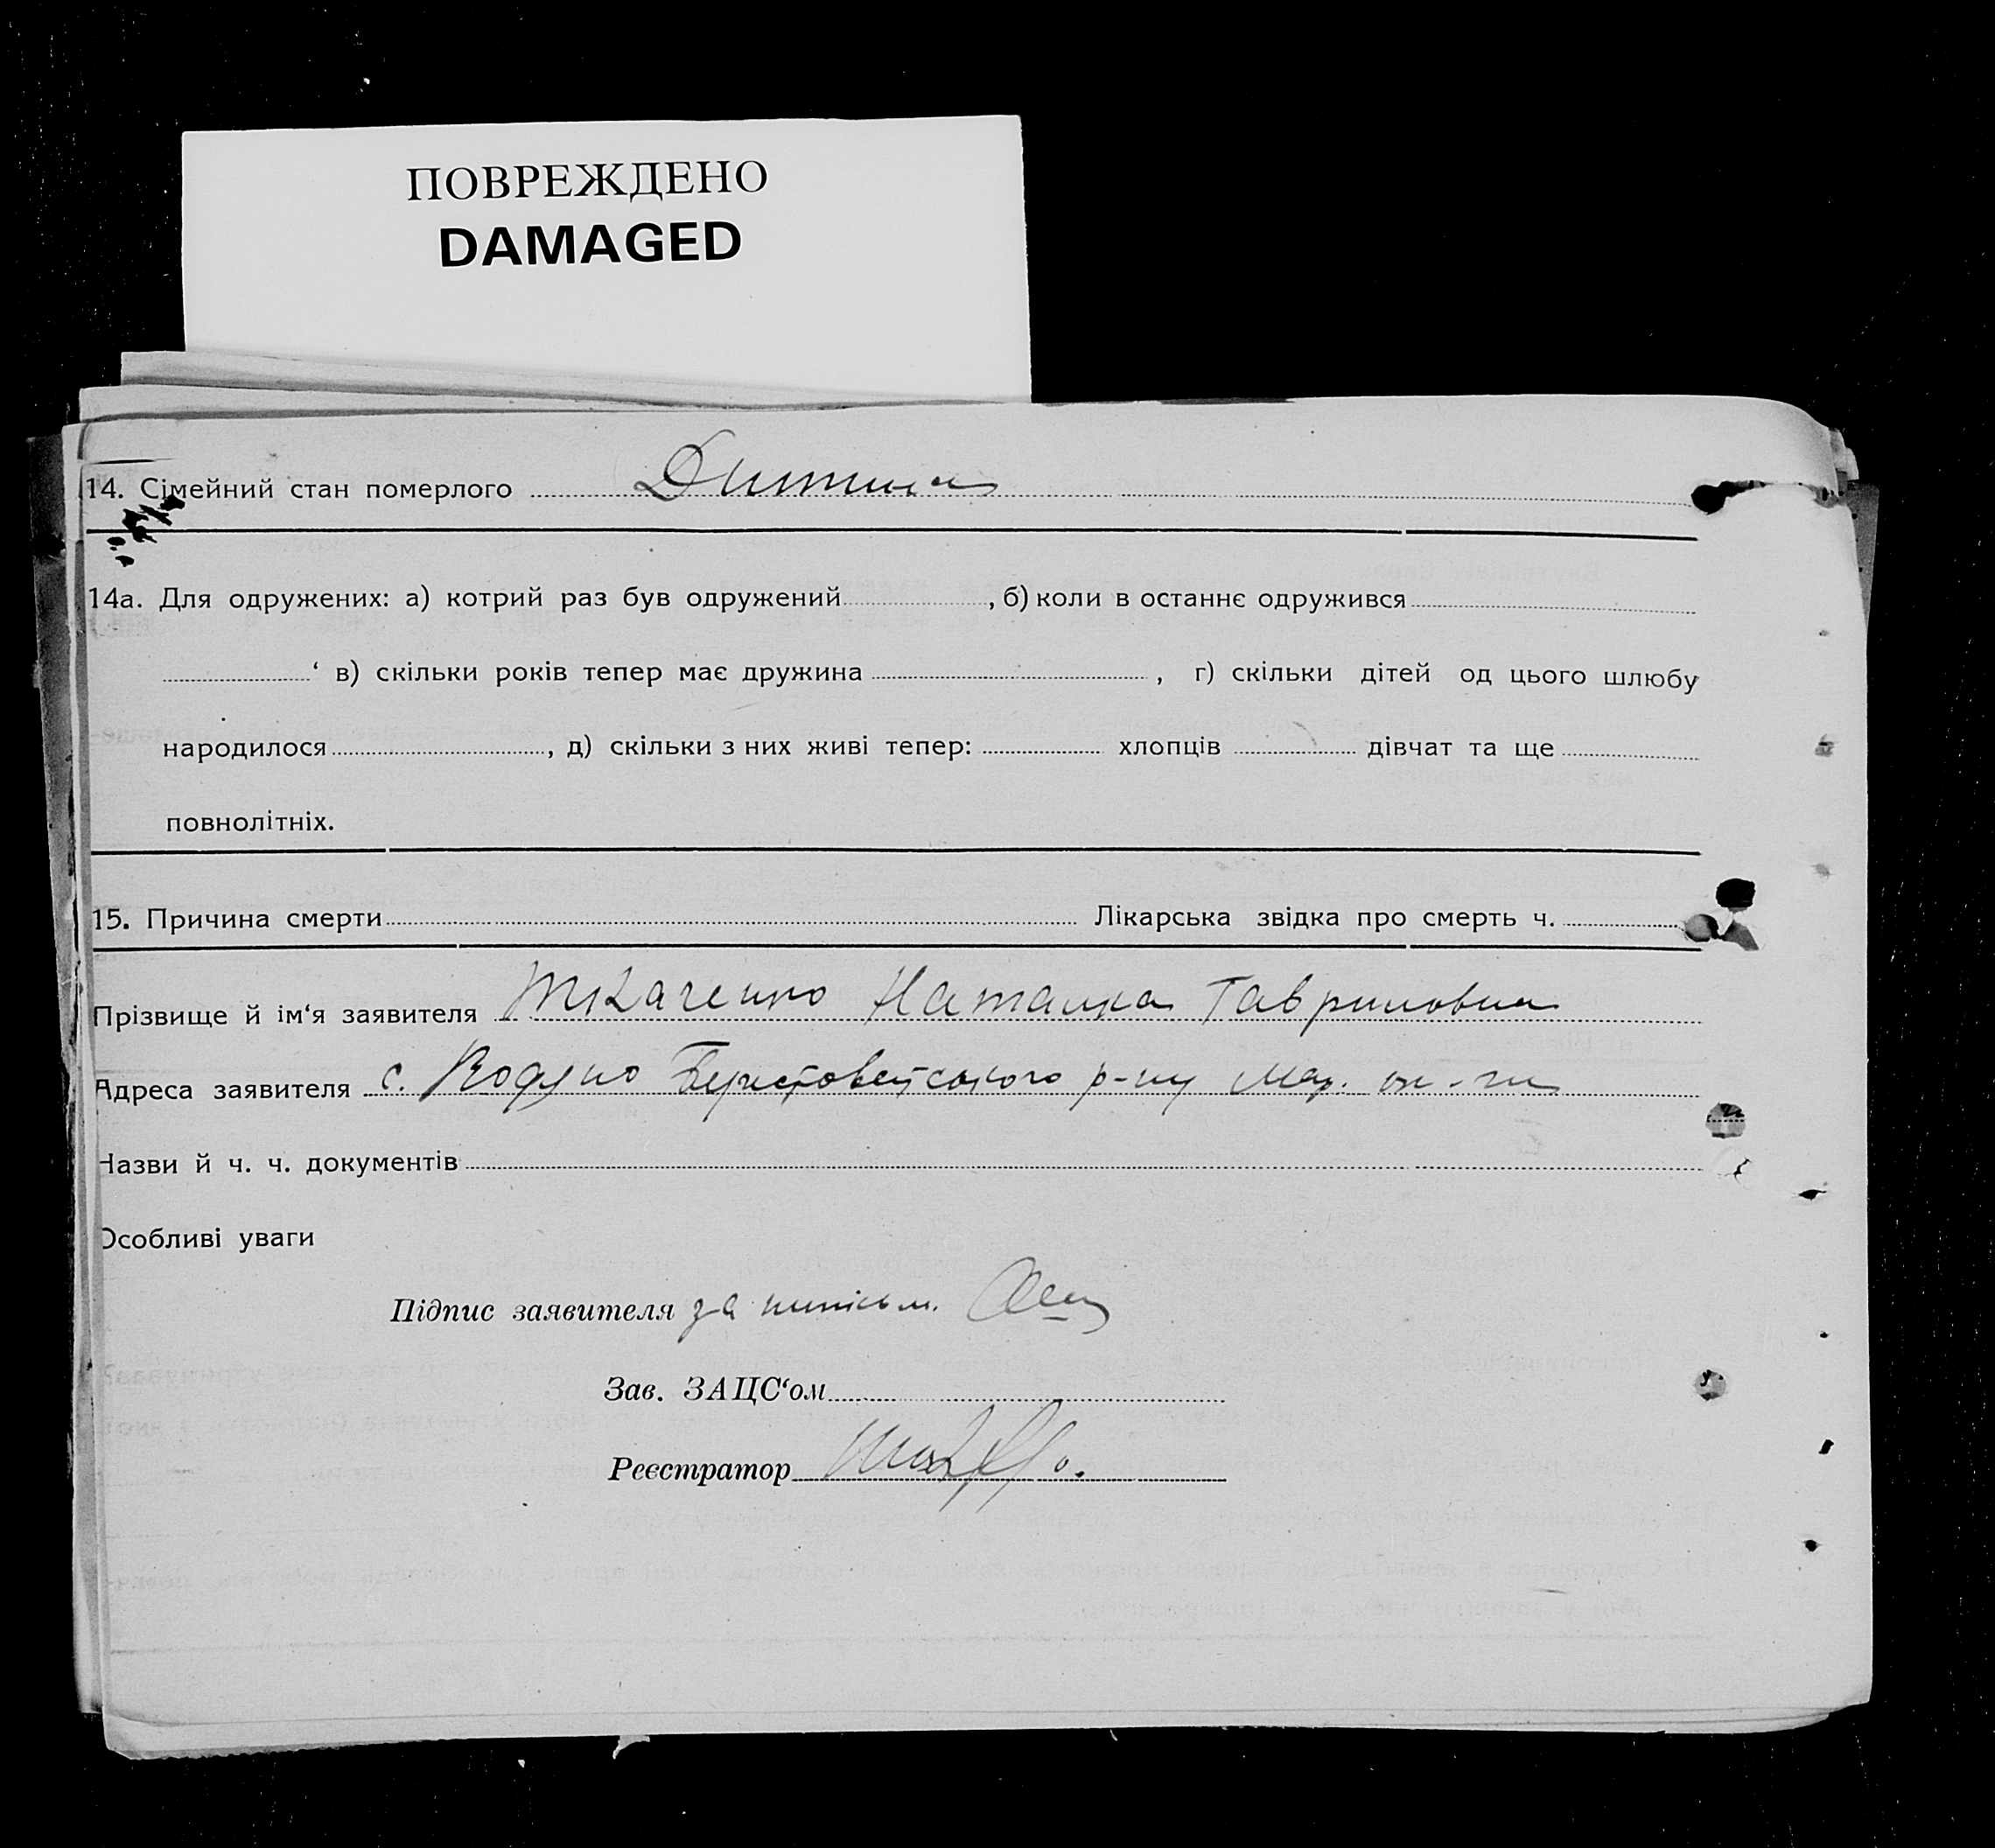 ПОВРЕЖДЕНО
DAMAGED
14. Сімейний стан померлого Дитина
14а. Для одружених: а) котрий раз був одружений , б) коли в останнє одружився
‘ в) скільки років тепер має дружина , г) скільки дітей од цього шлюбу
народилося , д) скільки з них живі тепер: хлопців дівчат та ще
повнолітніх.
15. Причина смерти Лікарська звідка про смерть ч.
Прізвище й ім‘я заявителя Ткаченко Наталка Гавриловна
Адреса заявителя с. Водяно р-ну Мар. ок-ги
Назви й ч. ч. документів
Особливі уваги
Підпис заявителя за
Зав. ЗАЦС‘ом
Реєстратор